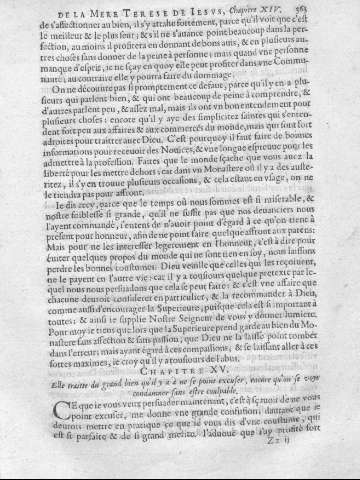 DE LA MERE TERESE DE IESVS, Chapitre XIV. 363
de s'affectionner au bien, il s'y attache fortement, parce qu'il voit que c'est
le meilleur & le plus seur; & s'il ne s'auance point beaucoup dans la per-
fection, au moins il profitera en donnant de bons auis, & en plusieurs au-
tres choses sans donner de la peine à personne: mais quand vne personne
manque d'esprit, ie ne sçay en quoy elle peut profiter dans vne Commu-
nauté; au contraire elle y pourra faire du dommage.
On ne découure pas si promptement ce defaut, parce qu'il y en a plu-
sieurs qui parlent bien, & qui ont beaucoup de peine à comprendre, &
d'autres parlent peu, & assez mal, mais ils ont vn bon entendement pour
plusieurs choses: encore qu'il y aye des simplicitez saintes qui s'enten-
dent fort peu aux affaires & aux commerces du monde, mais qui sont fort
adroites pour traitter auec Dieu. C'est pourquoy il faut faire de bonnes
informations pour receuoir des Nouices, & vne longue espreuue pour les
admettre à la profession. Faites que le monde sçache que vous auez la
liberté pour les mettre dehors; car dans vn Monastere où il y a des auste-
ritez, il s'y en trouue plusieurs occasions, & cela estant en vsage, on ne
le tiendra pas pour affront.
Ie dis cecy, parce que le temps où nous sommes est si miserable, &
nostre foiblesse si grande, qu'il ne suffit pas que nos deuanciers nous
l'ayent commandé, pour n'auoir point d'égard à ce qu'on tient à
present pour honneur, afin de ne point faire quelque affront aux parens:
Mais pour ne les interesser legerement en l'honneur, c'est à dire pour
éuiter quelques propos du monde qui ne sont rien en soy, nous laissons
perdre les bonnes coustumes. Dieu veuille que celles qui les reçoiuent,
ne le payent en l'autre vie: car il y a tousiours quelque pretexte par le-
quel nous nous persuadons que cela se peut faire; & c'est vne affaire que
chacune deuroit considerer en particulier, & la recommander à Dieu,
comme aussi d'encourager la Superieure, puisque cela est si important à
toutes; & ainsi ie supplie Nostre Seigneur de vous y donner lumiere.
Pour moy ie tiens que lors que la Superieure prend garde au bien du Mo-
nastere sans affection & sans passion, que Dieu ne la laisse point tomber
dans l'erreur; mais ayant égard à ces compassions, & se laissant aller à ces
sottes maximes, ie croy qu'il y a tousiours de l'abus.
CHAPITRE XV.
Elle traitte du grand bien qu'il y a à ne se point excuser, encore qu'on se voye
condamner sans estre coulpable.
CE que ie vous veux persuader maintenant, c'est à sçauoir de ne vous
point excuser, me donne vne grande confusion; dautant que ie
deurois mettre en pratique ce que ie vous dis d'vne coustume, qui
est si parfaite & de si grand merite. I'aduouë que i'ay profité fort
Zz ij